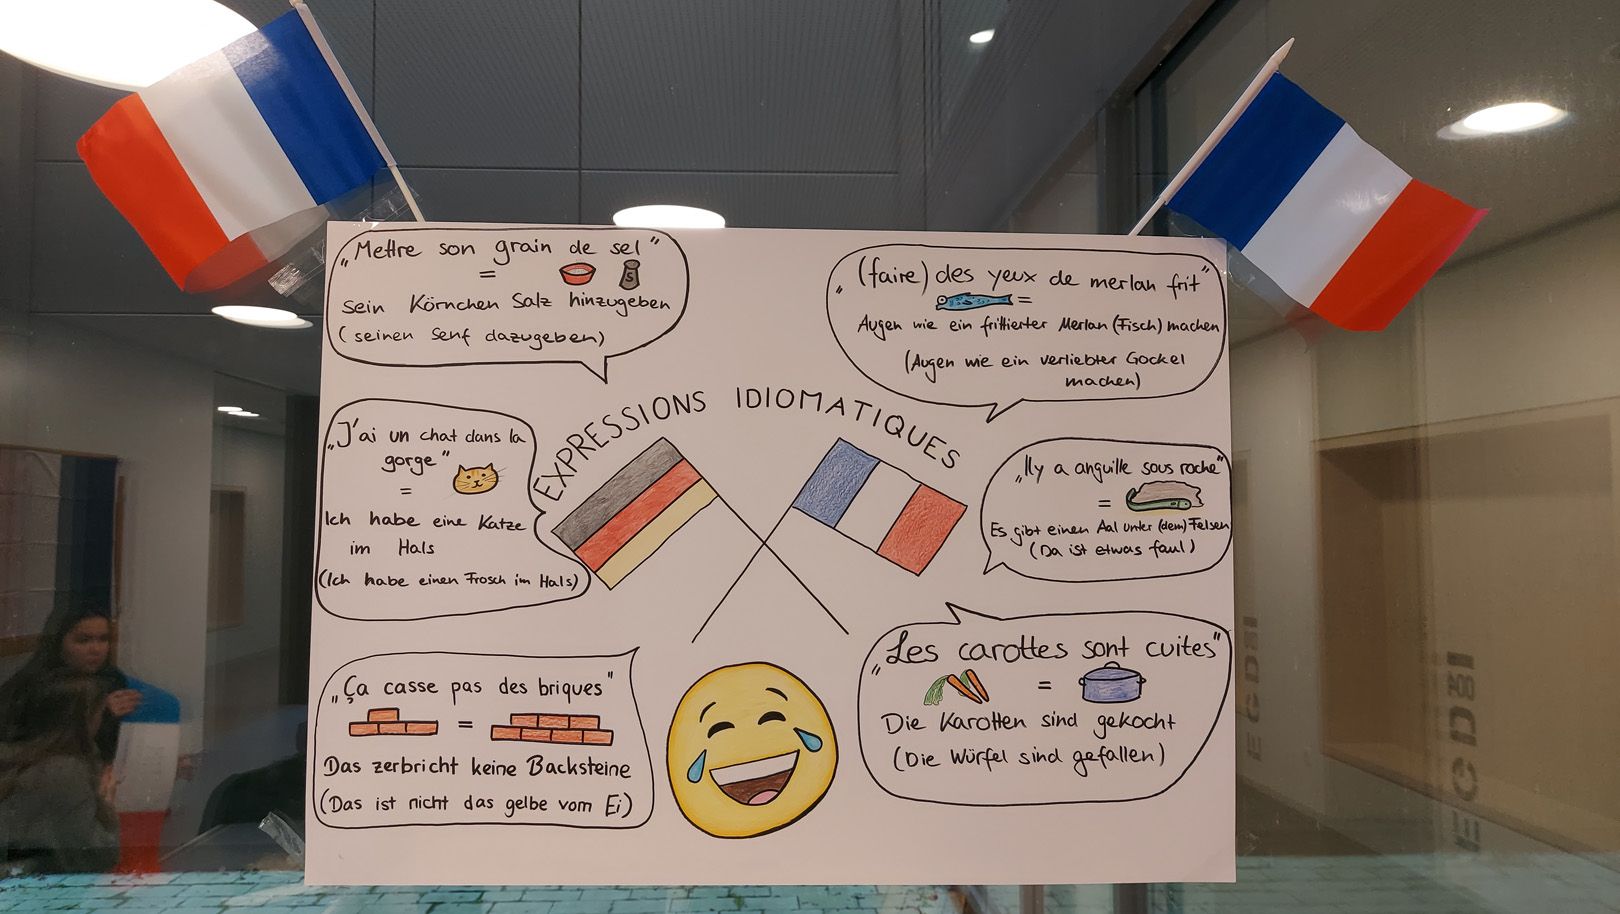 „Mettre son grain de sel"
=
sein Körnchen Salz hinzugeben
(seinen Senf dazugeben)
„(faire) des yeux de merlan frit"
=
Augen wie ein frittierter Merlan (Fisch) machen
(Augen wie ein verliebter Gockel
machen)
EXPRESSIONS IDIOMATIQUES
„J'ai un chat dans la
gorge"
=
Ich habe eine Katze
im Hals
(Ich habe einen Frosch im Hals)
„Il y a anguille sous roche"
=
Es gibt einen Aal unter (dem) Felsen
(Da ist etwas faul)
„Ça casse pas des briques"
=
Das zerbricht keine Backsteine
(Das ist nicht das gelbe vom Ei)
„Les carottes sont cuites"
=
Die Karotten sind gekocht
(Die Würfel sind gefallen)